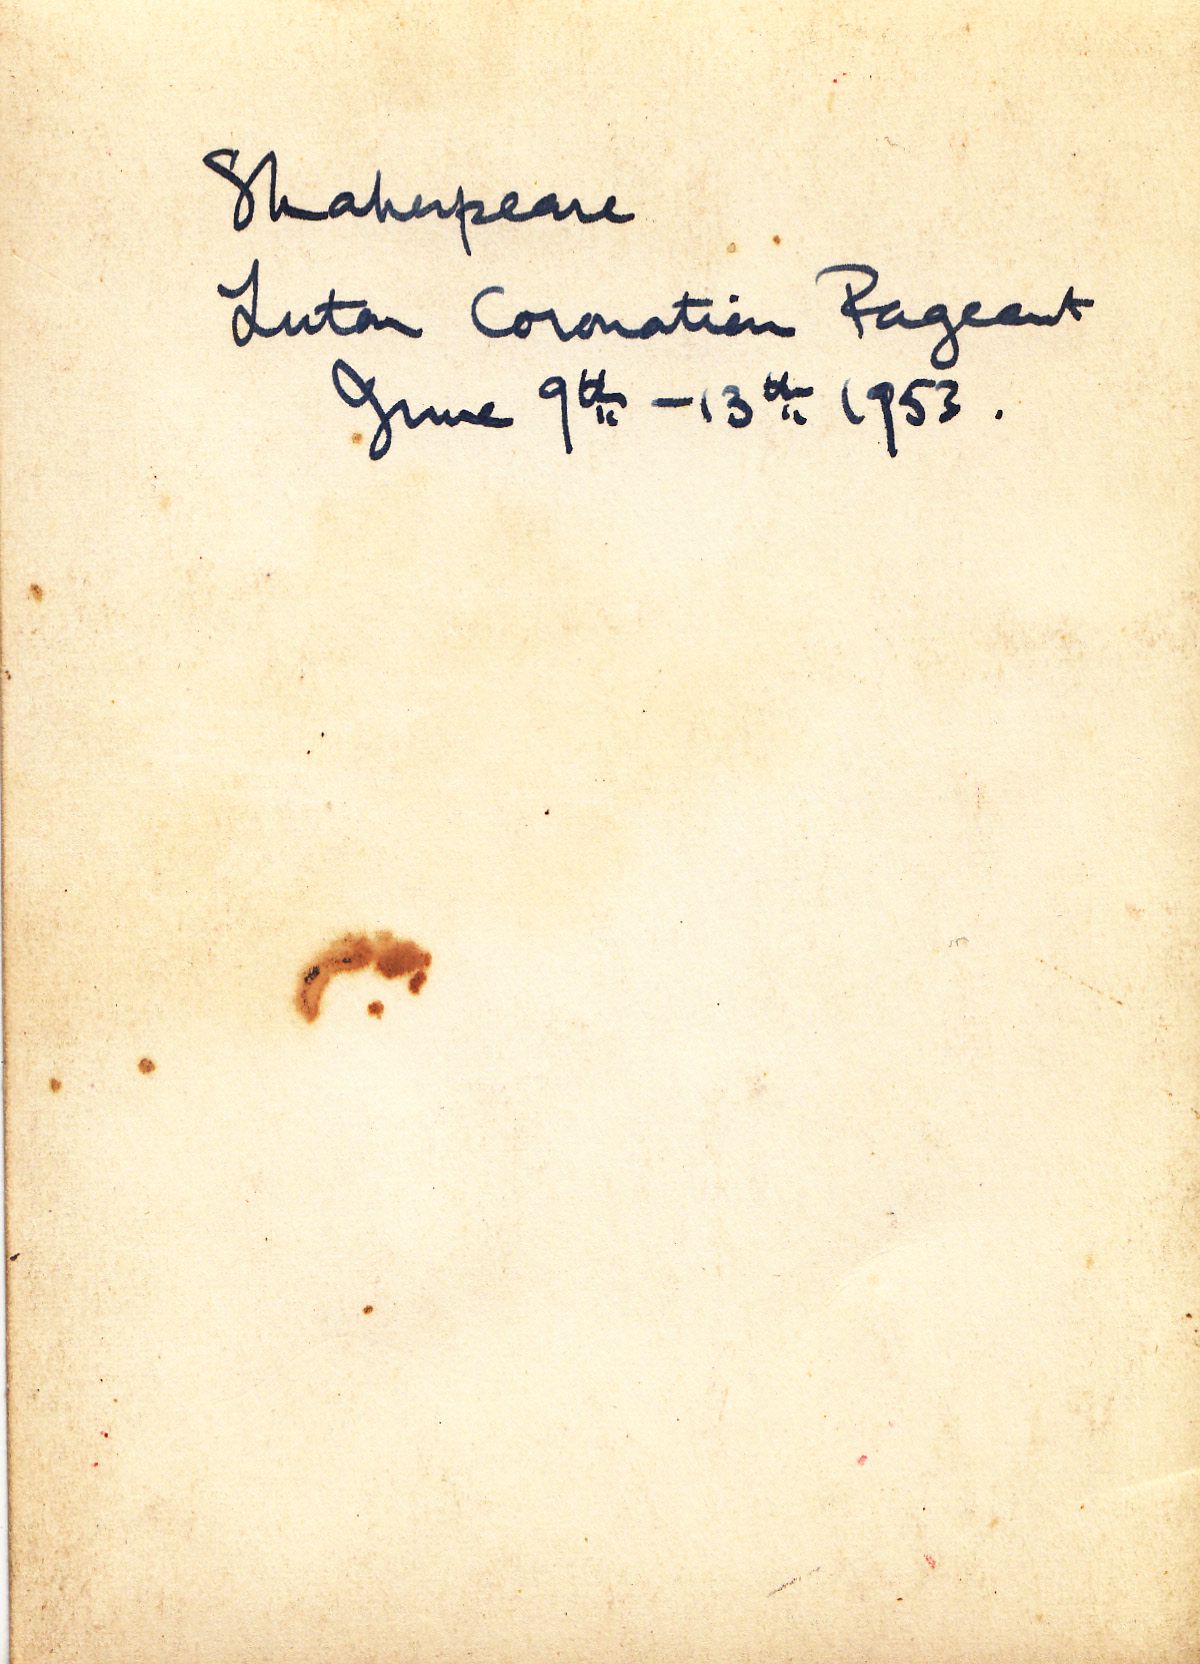 Shakespeare
Luton Coronation Pageant
June 9th - 13th 1953.